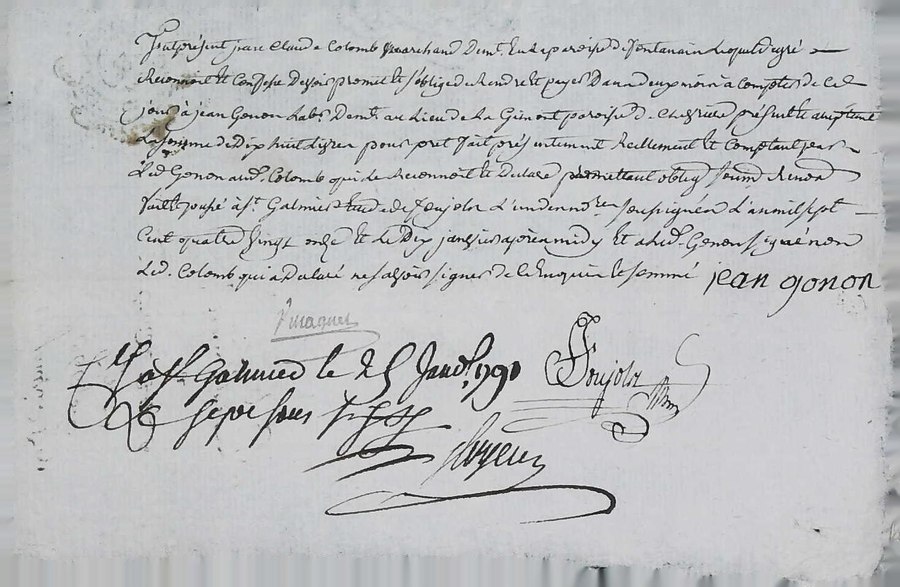 Fut présent jean Claude Colomb marchand demt. en la paroisse de fontanain lequel degré
Reconnoit et Confesse devoir promet et s'oblige de Rendre et payer Dans deux mois à Compter de Ce
jour à jean Gonon Labr. Demt. au Lieu de La paroisse de Chevriere présent et acceptant
La somme de Dix huit Livres pour pret fait présentement Reellement et Comptant par
Led Gonon aud. Colomb qui le Reconnoit et Declare promettant oblig. soum. Renon.
fait et passé à st. Galmier etude de foujols L'un des no.res soussignés L'an mil sept
Cent quatre vingt onze et Le Dix janvier après midy et a led. Gonon signé non
Led. Colomb qui a Declaré ne sçavoir signer de ce Enquis et sommé jean gonon
à st. Galmier le 25 Janv. 1791
foujols
Reçu quinze sous